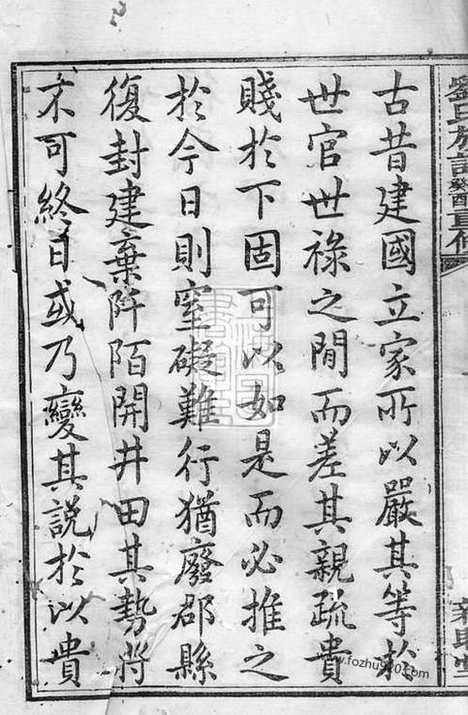 劉氏族譜 癸酉重修
古昔建國立家所以嚴其等於
世官世祿之間而差其親疏貴
賤於下固可以如是而必推之
於今日則窒礙難行猶廢郡縣
復封建棄阡陌開井田其勢將
不可終日或乃變其說於以貴
www.fozhu920.com